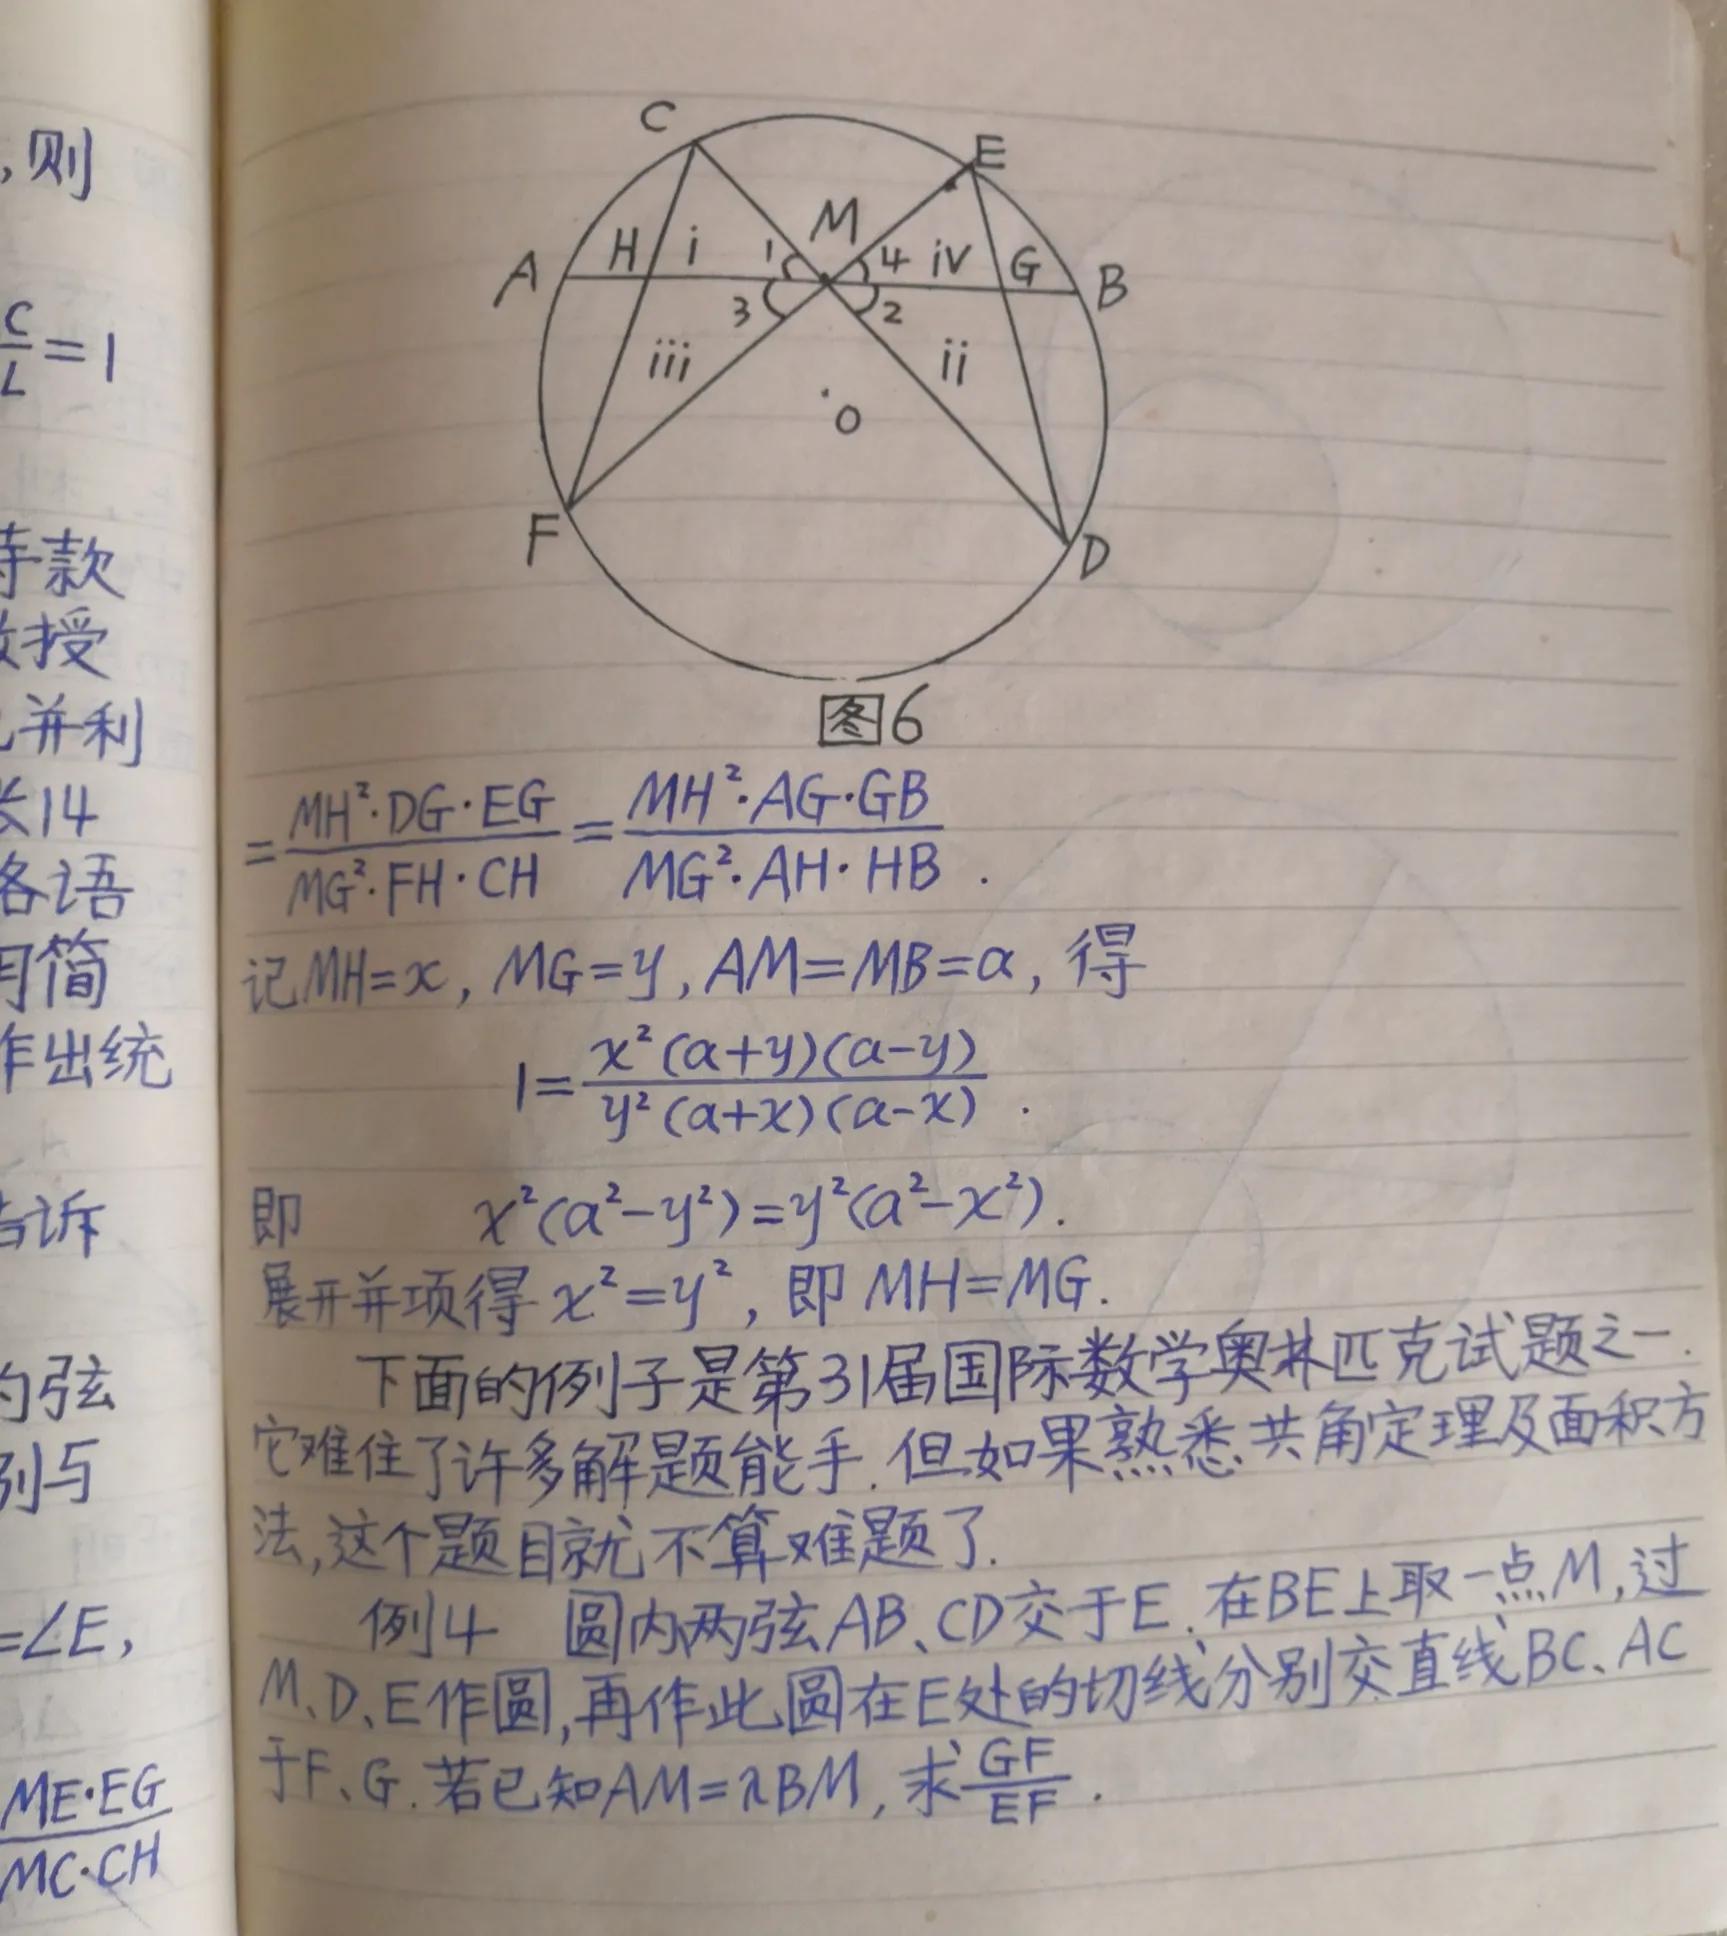 ,则
C/L=1
款
授
并利
14
语
简
作出统
诉
的弦
别与
=∠E,
ME·EG/MC·CH
C
E
M
A H i 1 4 iv G B
3 2
iii ii
O
F
D
图6
=MH²·DG·EG/MG²·FH·CH=MH²·AG·GB/MG²·AH·HB.
记MH=x, MG=y, AM=MB=a, 得
1=x²(a+y)(a-y)/y²(a+x)(a-x).
即 x²(a²-y²)=y²(a²-x²).
展开并项得 x²=y², 即 MH=MG.
下面的例子是第31届国际数学奥林匹克试题之一.
它难住了许多解题能手.但如果熟悉共角定理及面积方
法,这个题目就不算难题了.
例4 圆内两弦AB、CD交于E.在BE上取一点M,过
M、D、E作圆,再作此圆在E处的切线分别交直线BC、AC
于F、G.若已知AM=λBM,求GF/EF.